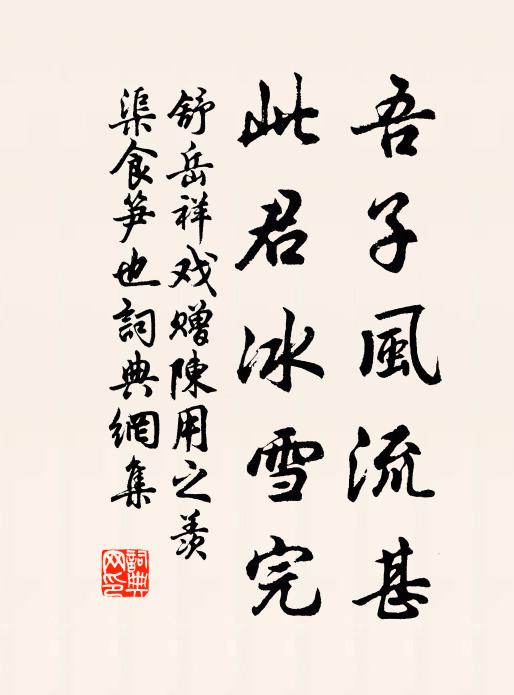 吾子風流甚
此君冰雪完
舒岳祥戏赠陳用之羨
渠食笋也詞典網集
詞典
网印